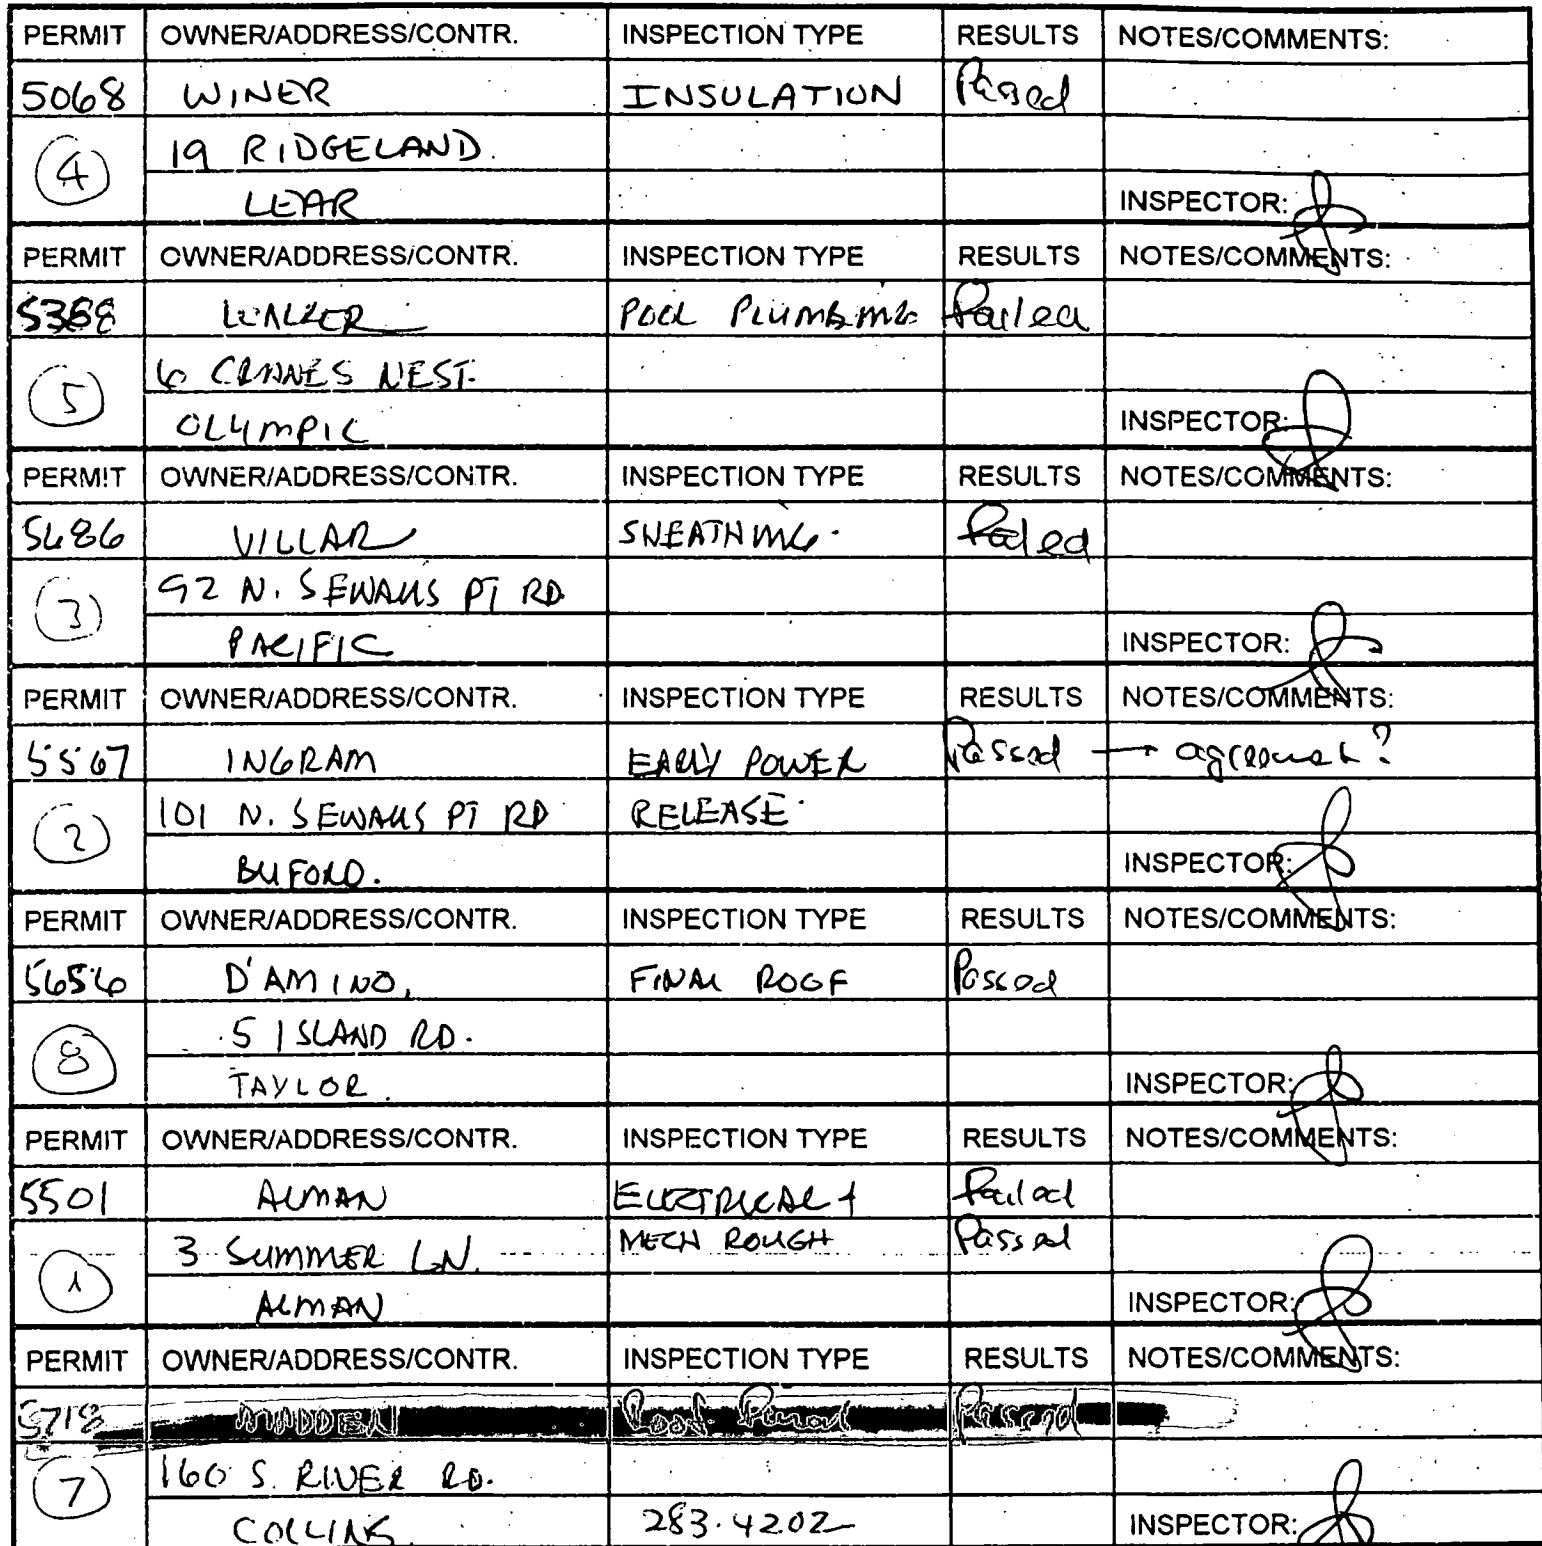 PERMIT OWNER/ADDRESS/CONTR. INSPECTION TYPE RESULTS NOTES/COMMENTS:
5068 WINER INSULATION Passed
4 19 RIDGELAND.
LEAR INSPECTOR:
PERMIT OWNER/ADDRESS/CONTR. INSPECTION TYPE RESULTS NOTES/COMMENTS:
WALKER POOL PLUMBING Failed
5 6 CRANES NEST.
OLYMPIC INSPECTOR:
PERMIT OWNER/ADDRESS/CONTR. INSPECTION TYPE RESULTS NOTES/COMMENTS:
5686 VILLAR SHEATHING. Failed
3 92 N. SEWALLS PT RD
PACIFIC INSPECTOR:
PERMIT OWNER/ADDRESS/CONTR. INSPECTION TYPE RESULTS NOTES/COMMENTS:
5567 INGRAM EARLY POWER Passed → agreement?
2 101 N. SEWALLS PT RD RELEASE.
BUFORD. INSPECTOR:
PERMIT OWNER/ADDRESS/CONTR. INSPECTION TYPE RESULTS NOTES/COMMENTS:
5656 D'AMINO, FINAL ROOF Passed
8 5 ISLAND RD.
TAYLOR. INSPECTOR:
PERMIT OWNER/ADDRESS/CONTR. INSPECTION TYPE RESULTS NOTES/COMMENTS:
5501 ALMAN ELECTRICAL + Failed
1 3 SUMMER LN. MECH ROUGH Passed
ALMAN INSPECTOR:
PERMIT OWNER/ADDRESS/CONTR. INSPECTION TYPE RESULTS NOTES/COMMENTS:
5718 MADDEN Passed
7 160 S. RIVER RD.
COLLINS. 283.4202 INSPECTOR: